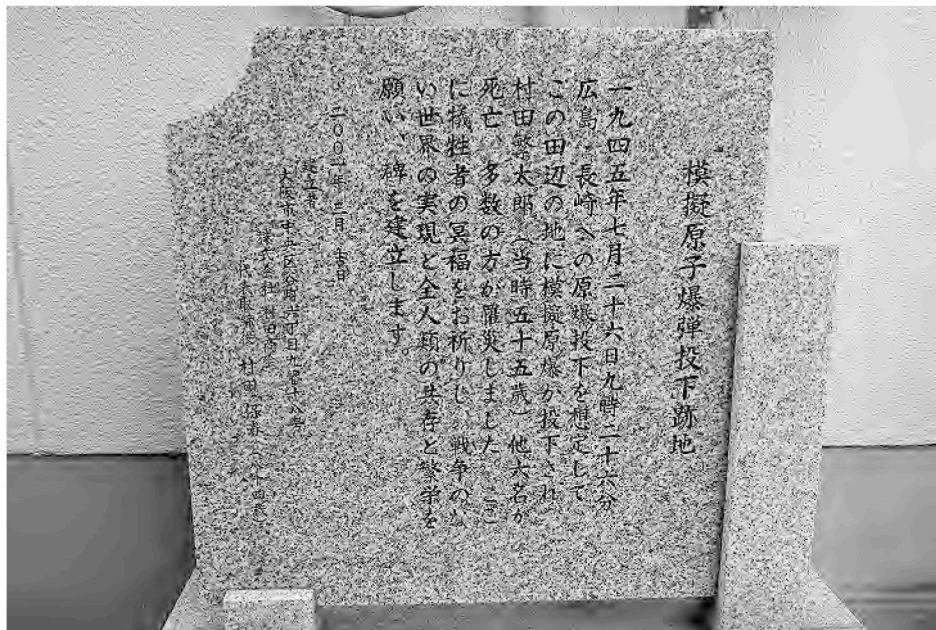 模擬原子爆弾投下跡地
一九四五年七月二十六日九時二十六分
広島・長崎への原爆投下を想定して
この田辺の地に模擬原爆が投下され
村田繁太郎（当時五十五歳）他六名が
死亡、多数の方が罹災しました。ここ
に犠牲者の冥福をお祈りし、戦争のな
い世界の実現と全人類の共存と繁栄を
願い、碑を建立します。
二〇〇一年 三月 吉日
建立者
大阪市中央区 六丁目九番十八号
株式会社 村田
代表取締役 村田